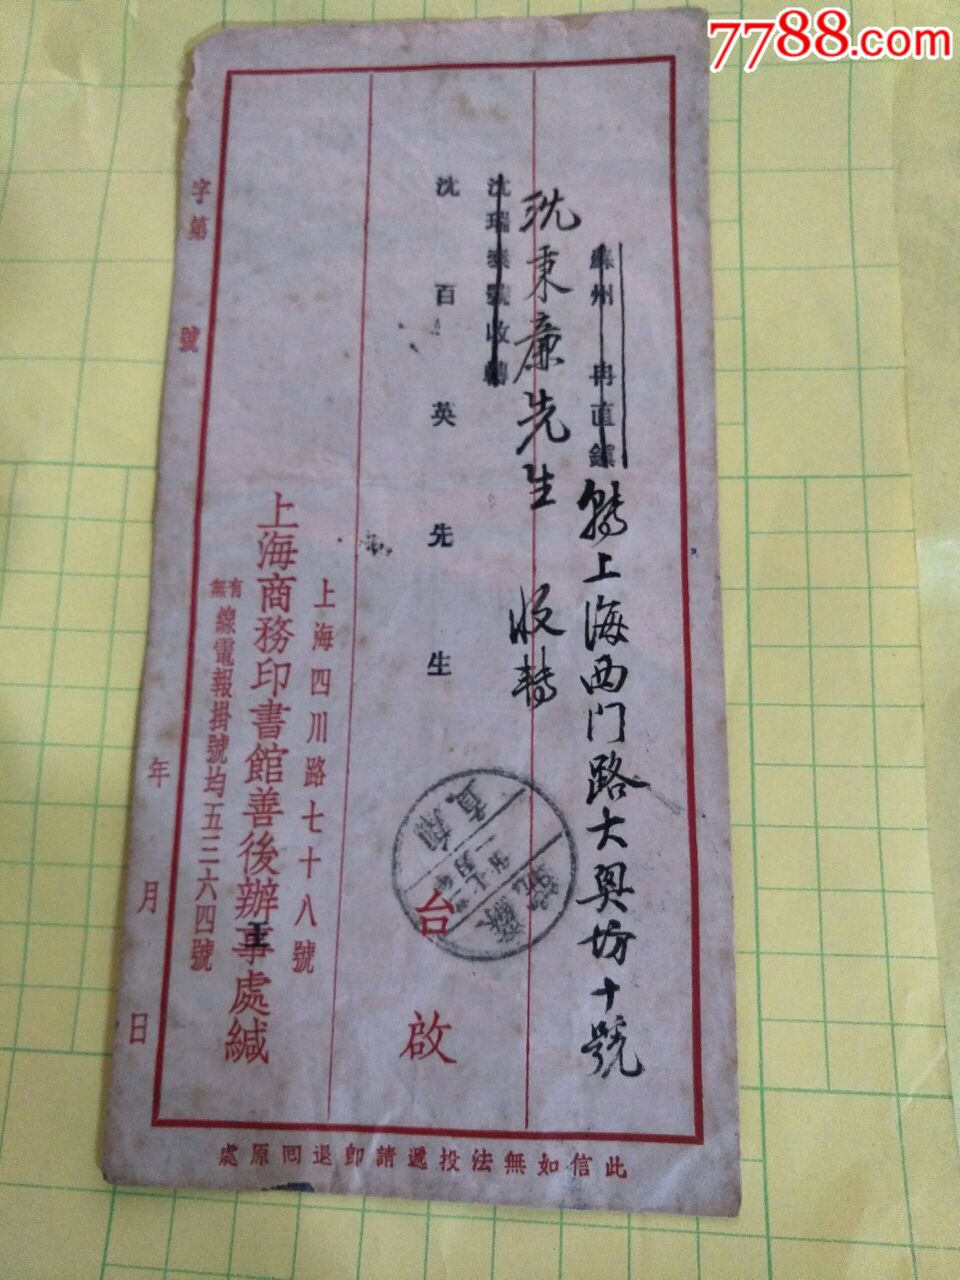 7788.com
蘇州 甪直鎮
轉上海西门路大興坊十號
沈秉廉先生 收轉
沈瑞泰號收轉
沈百英先生
台啟
上海四川路七十八號
上海商務印書館善後辦事處緘
有無線電報掛號均五三六四號
字第 號
年 月 日
此信如無法投遞請卽退囘原處